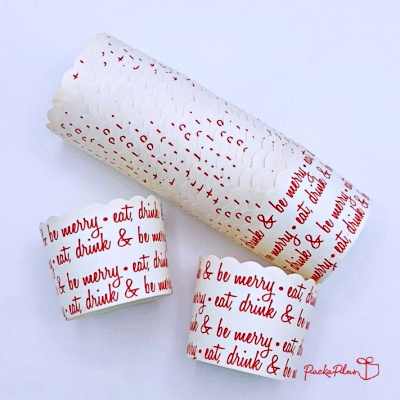 & be merry • eat,
& be merry • eat, drink
& be merry • eat, drink
be merry • eat, drink
• eat, drink & be
be merry • eat, drink
eat, drink & be
& be merry • eat,
• eat, drink & be
& be merry • eat,
• eat, drink &
PackaPlus